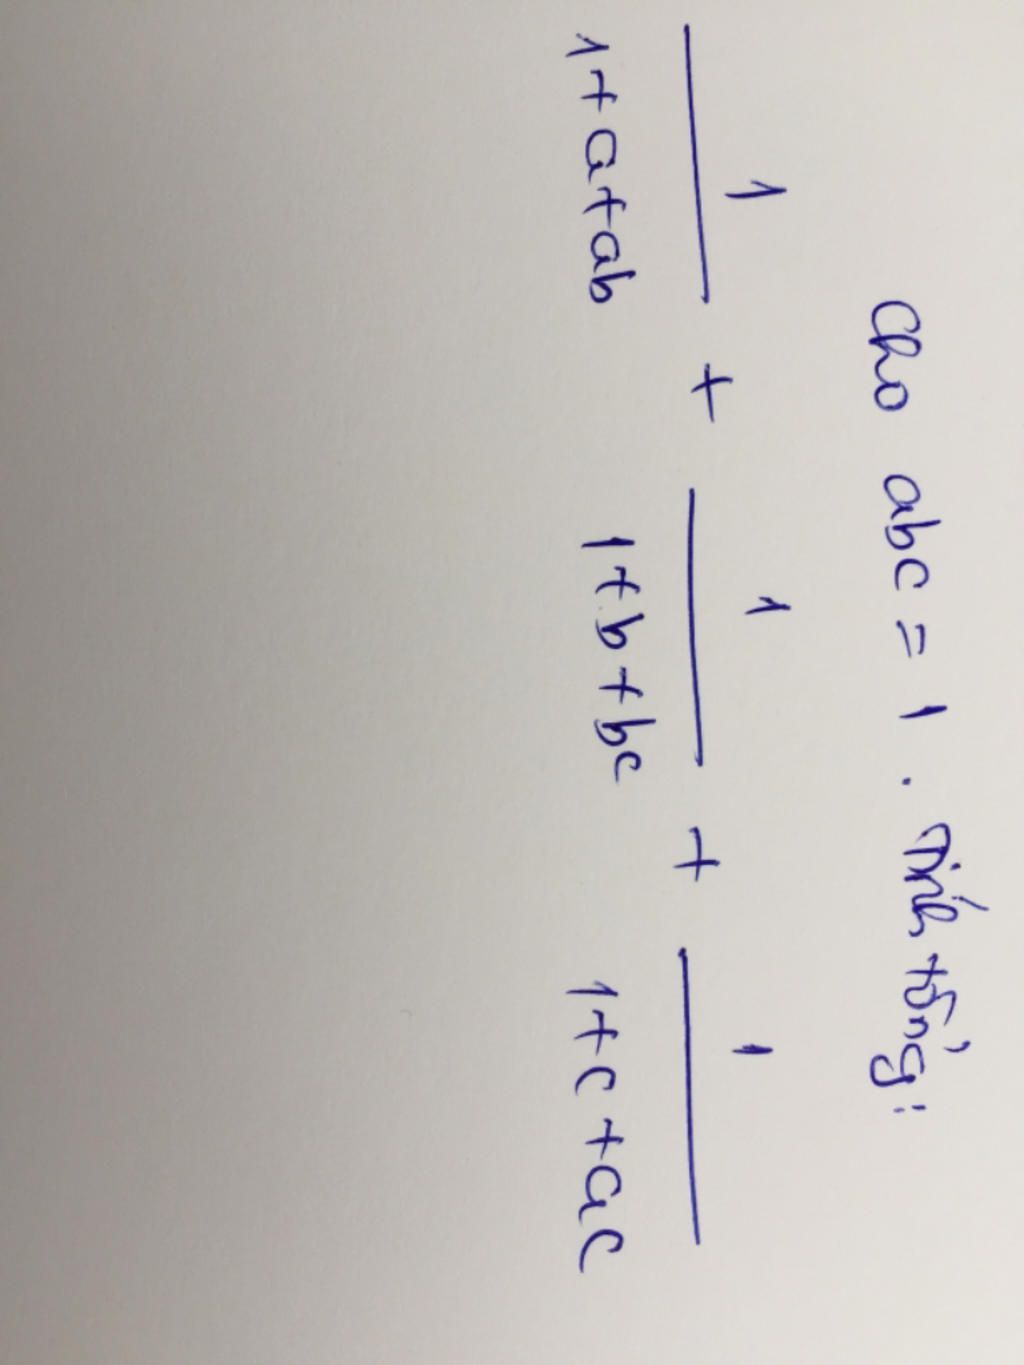 Cho abc = 1 . Tính tổng:
1/(1+a+ab) + 1/(1+b+bc) + 1/(1+c+ac)